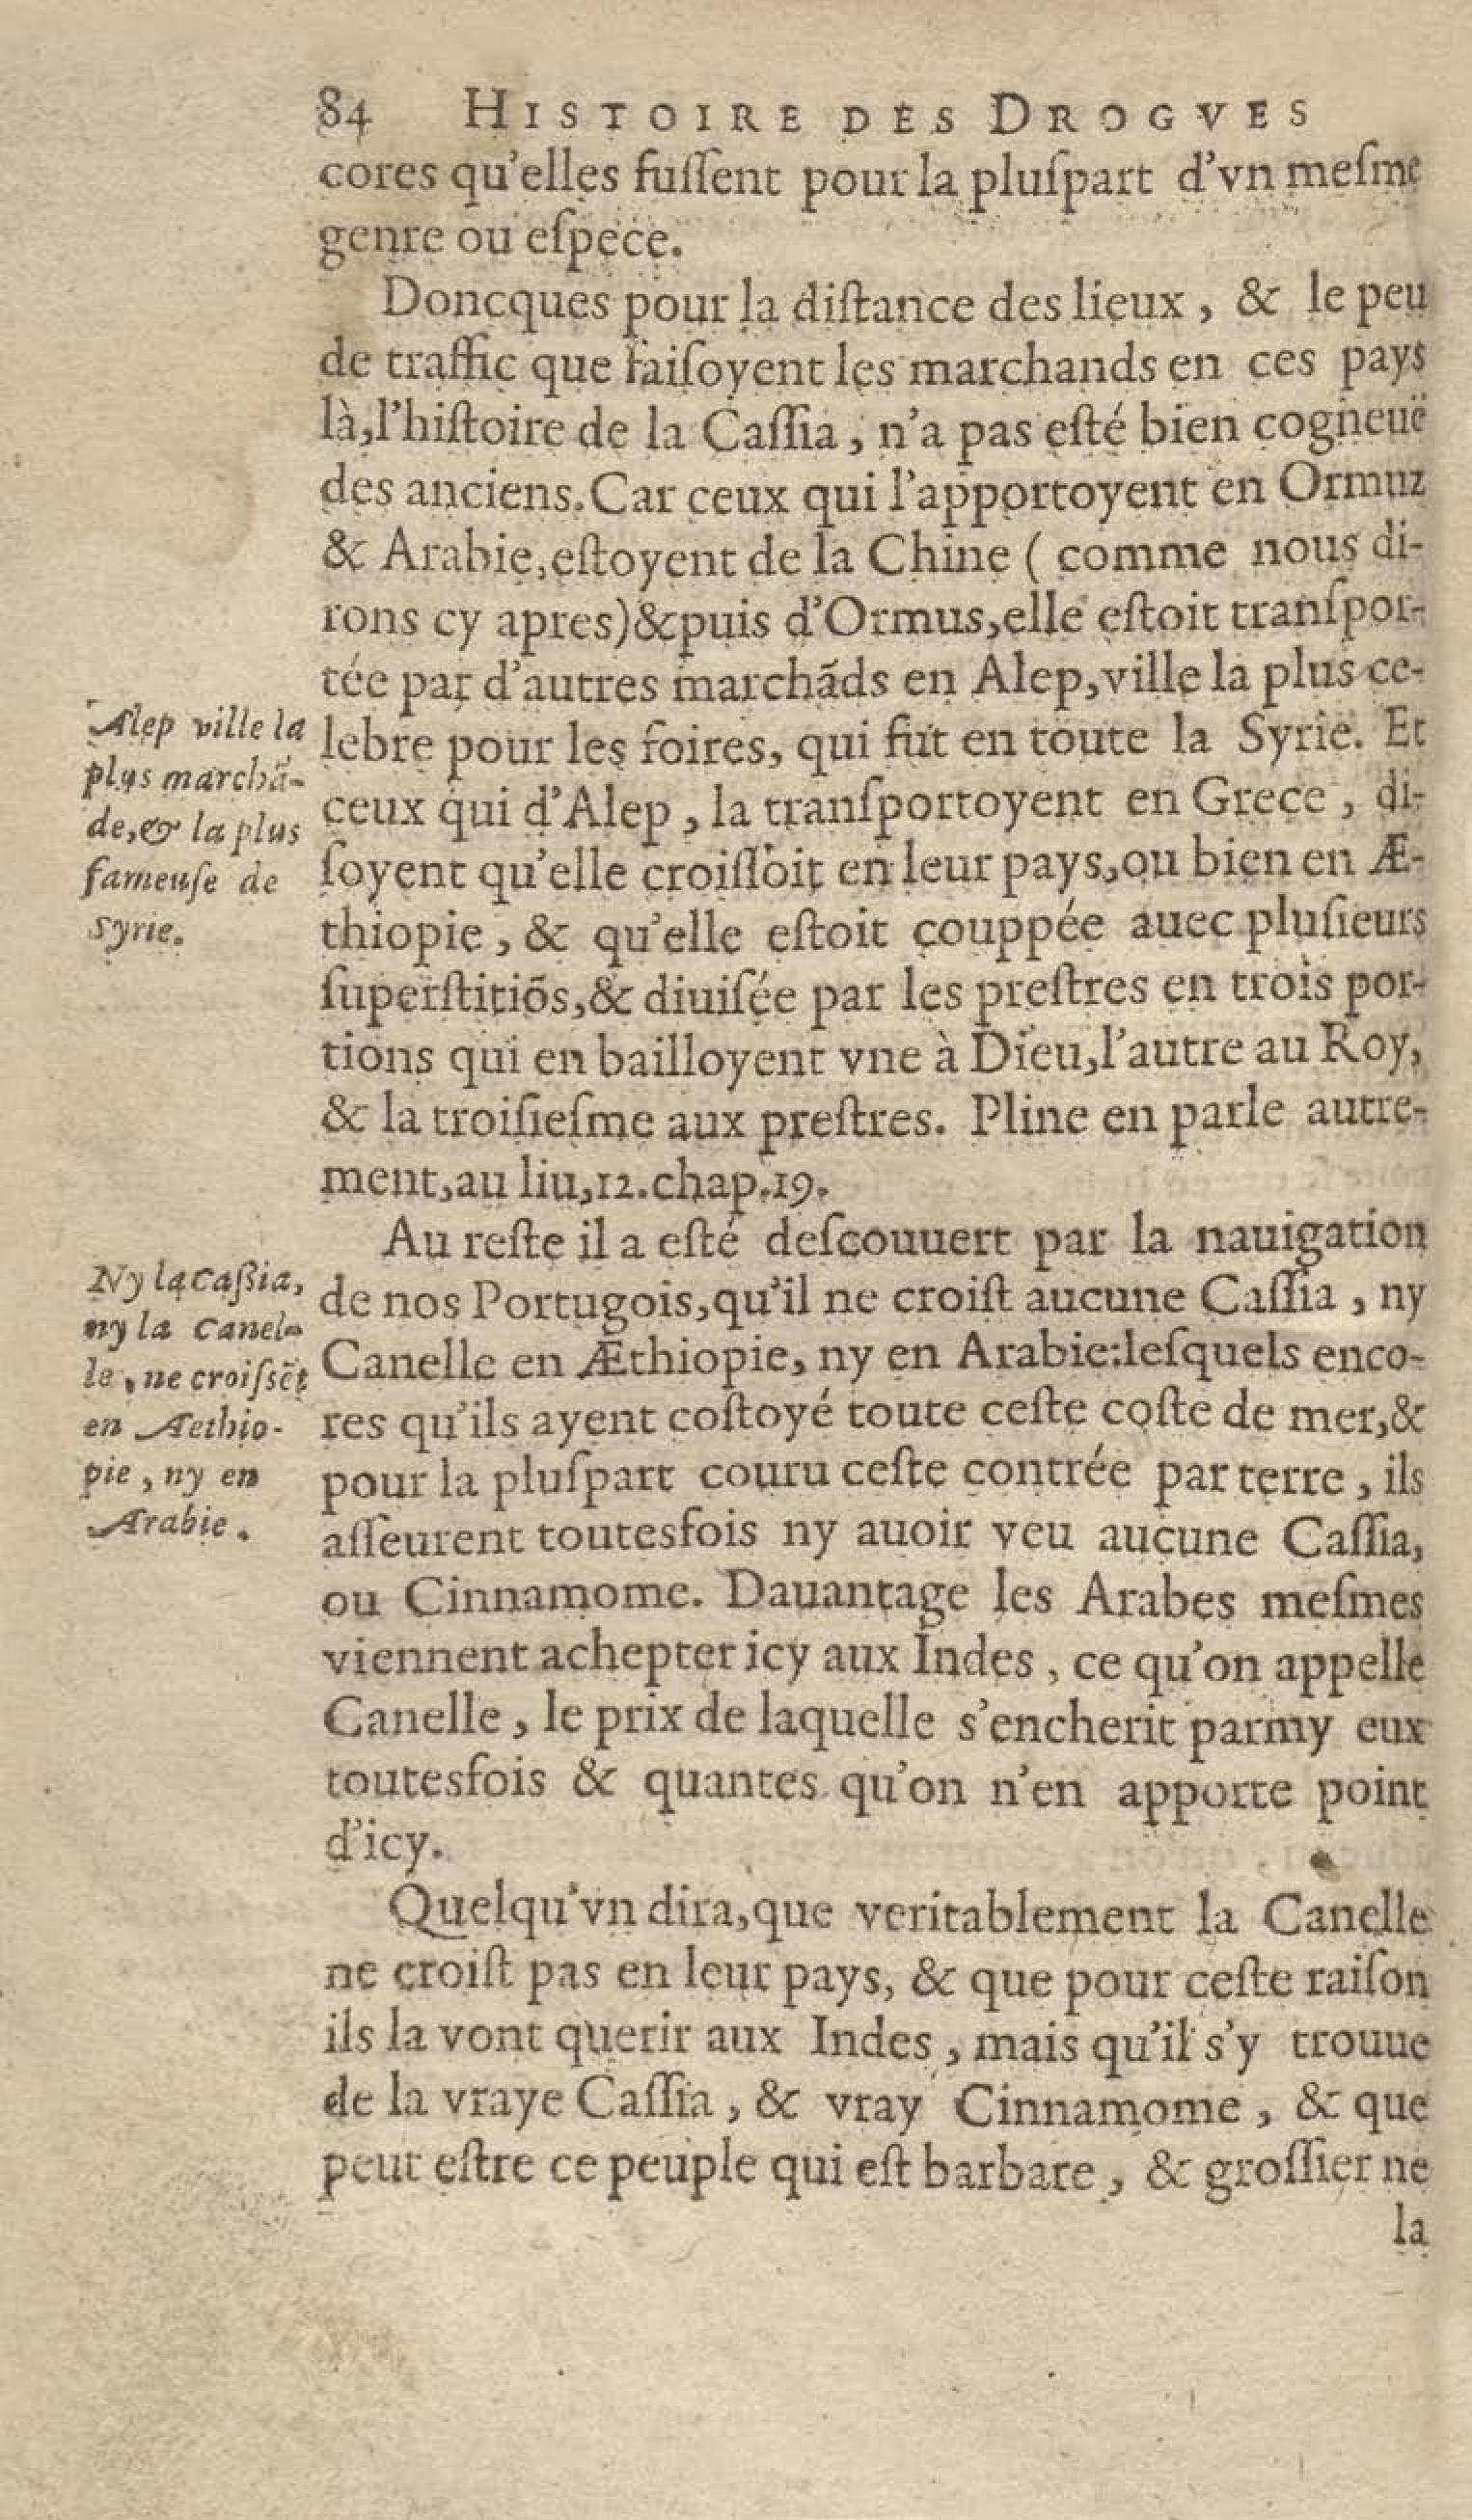 84 HISTOIRE DES DROGVES
cores qu'elles fuſſent pour la pluſpart d'vn meſme
genre ou eſpece.
Doncques pour la diſtance des lieux, & le peu
de traffic que faiſoyent les marchands en ces pays
là, l'hiſtoire de la Caſſia, n'a pas eſté bien cogneuë
des anciens. Car ceux qui l'apportoyent en Ormuz
& Arabie, eſtoyent de la Chine ( comme nous di-
rons cy apres) & puis d'Ormus, elle eſtoit tranſpor-
tée par d'autres marchãds en Alep, ville la plus ce-
lebre pour les foires, qui fut en toute la Syrie. Et
ceux qui d'Alep, la tranſportoyent en Grece, di-
ſoyent qu'elle croiſſoit en leur pays, ou bien en Æ-
thiopie, & qu'elle eſtoit couppée auec pluſieurs
ſuperſtitiõs, & diuiſée par les preſtres en trois por-
tions qui en bailloyent vne à Dieu, l'autre au Roy,
& la troiſieſme aux preſtres. Pline en parle autre-
ment, au liu, 12. chap. 19.
Alep ville la
plus marchã-
de, & la plus
fameuſe de
Syrie.
Au reſte il a eſté deſcouuert par la nauigation
de nos Portugois, qu'il ne croiſt aucune Caſſia, ny
Canelle en Æthiopie, ny en Arabie: leſquels enco-
res qu'ils ayent coſtoyé toute ceſte coſte de mer, &
pour la pluſpart couru ceſte contrée par terre, ils
aſſeurent toutesfois ny auoir veu aucune Caſſia,
ou Cinnamome. Dauantage les Arabes meſmes
viennent achepter icy aux Indes, ce qu'on appelle
Canelle, le prix de laquelle s'encherit parmy eux
toutesfois & quantes qu'on n'en apporte point
d'icy.
Ny la caßia,
ny la Canel-
le, ne croiſsẽt
en Aethio-
pie, ny en
Arabie.
Quelqu'vn dira, que veritablement la Canelle
ne croiſt pas en leur pays, & que pour ceſte raiſon
ils la vont querir aux Indes, mais qu'il s'y trouue
de la vraye Caſſia, & vray Cinnamome, & que
peut eſtre ce peuple qui eſt barbare, & groſſier ne
la